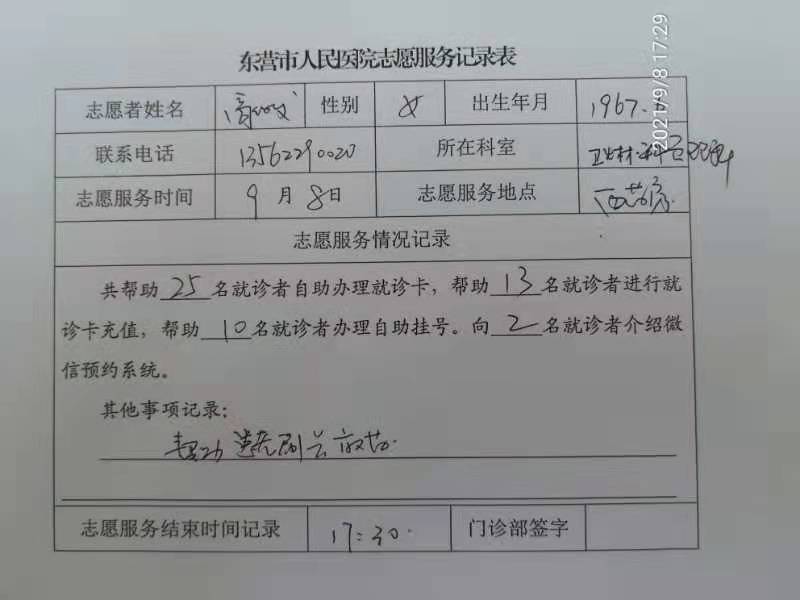 2021/9/8 17:29
东营市人民医院志愿服务记录表
志愿者姓名 性别 女 出生年月 1967.
联系电话 13562290020 所在科室
志愿服务时间 9月8日 志愿服务地点 西药房
志愿服务情况记录
共帮助25名就诊者自助办理就诊卡，帮助13名就诊者进行就
诊卡充值，帮助10名就诊者办理自助挂号。向2名就诊者介绍微
信预约系统。
其他事项记录：
志愿服务结束时间记录 17:30 门诊部签字